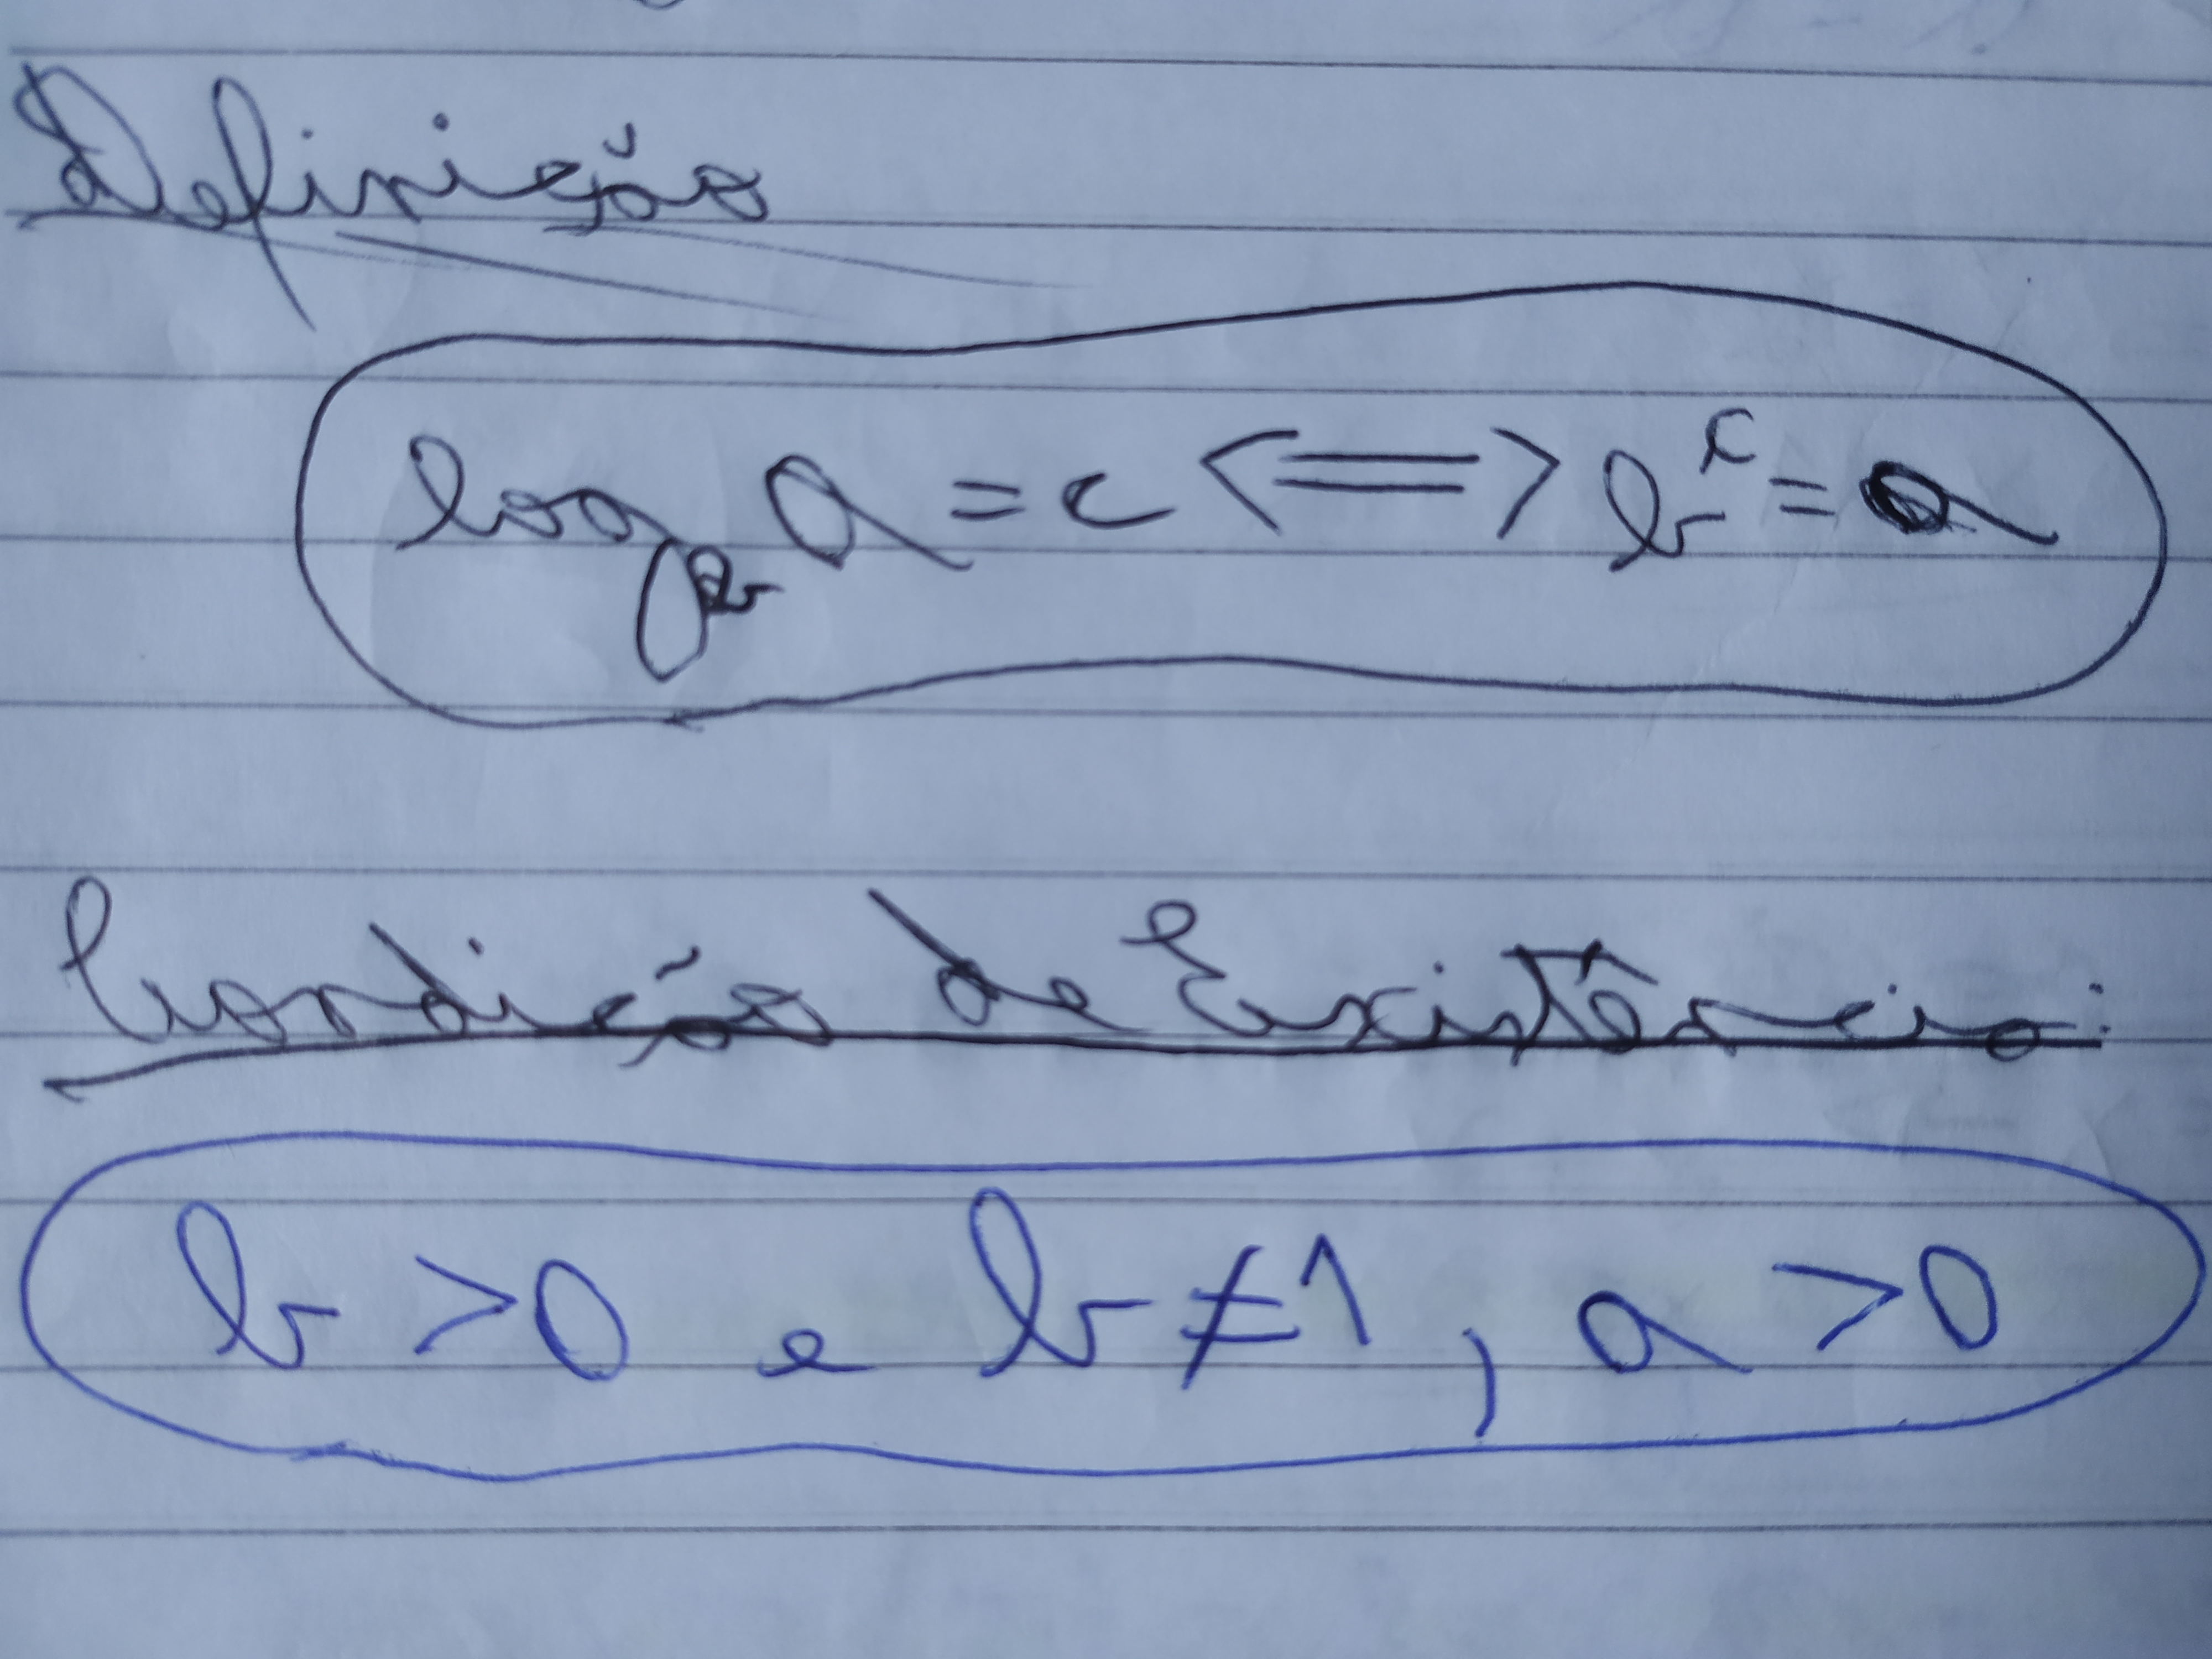 Definição
log_b a = c <=> b^c = a
Condição de Existência:
b > 0 e b ≠ 1, a > 0